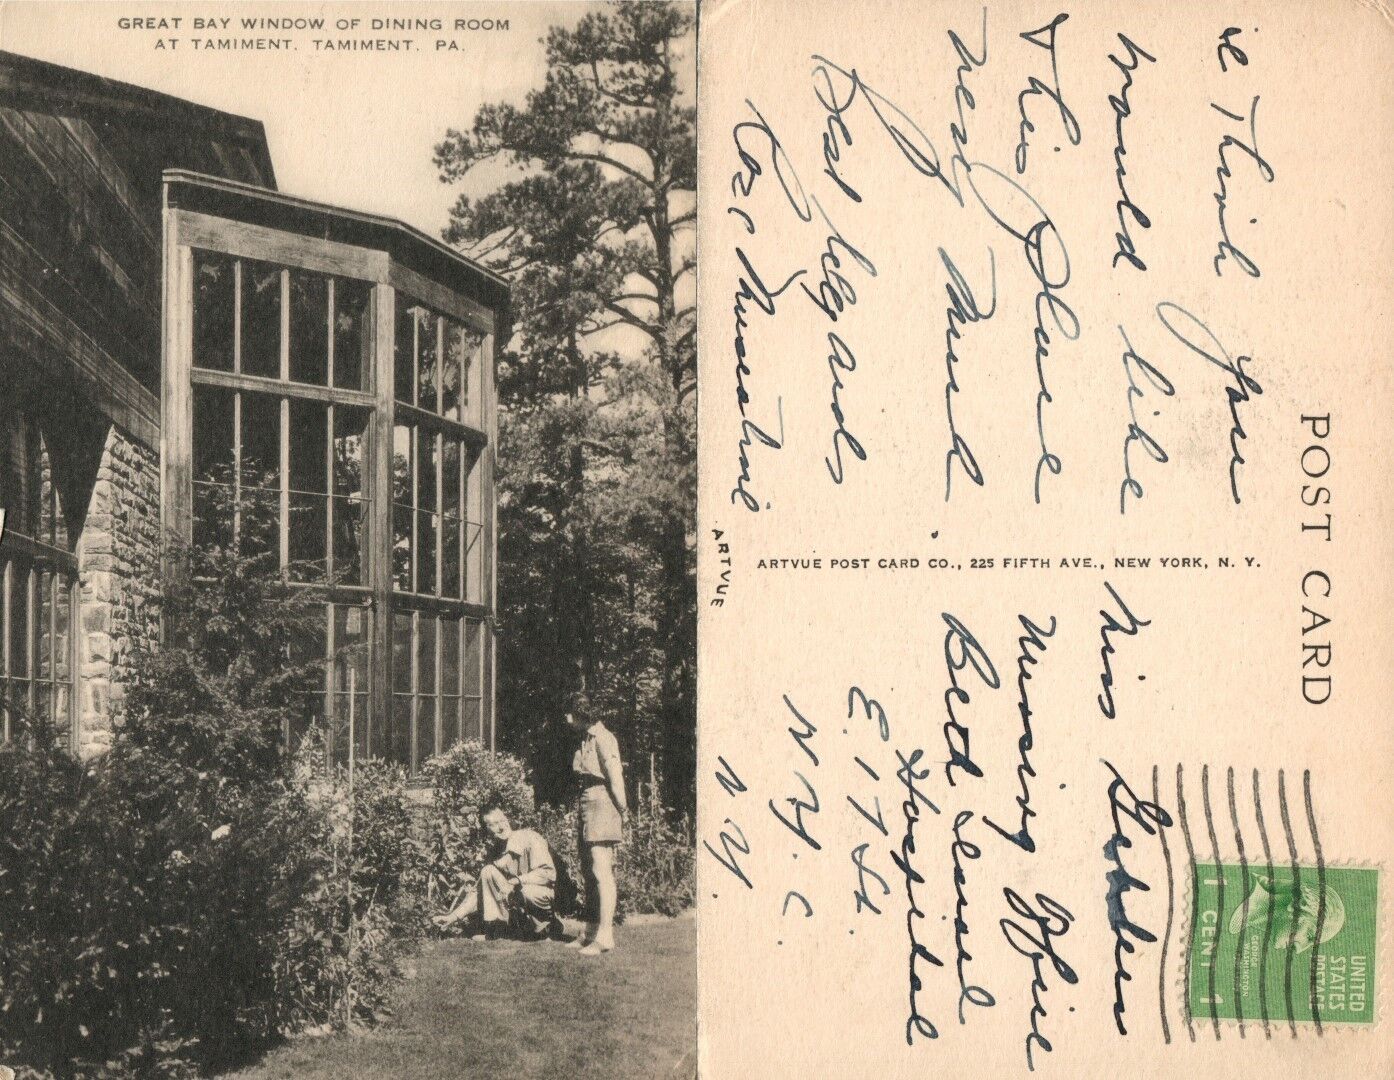 GREAT BAY WINDOW OF DINING ROOM
AT TAMIMENT, TAMIMENT, PA.
POST CARD
I Think you
would like
This Place
very much
Best Regards
ARTVUE
ARTVUE POST CARD CO., 225 FIFTH AVE., NEW YORK, N. Y.
Miss
Nursing Office
Beth Israel
Hospital
E. 17 St.
N. Y. C.
N. Y.
UNITED
STATES
POSTAGE
GEORGE
WASHINGTON
1 CENT 1